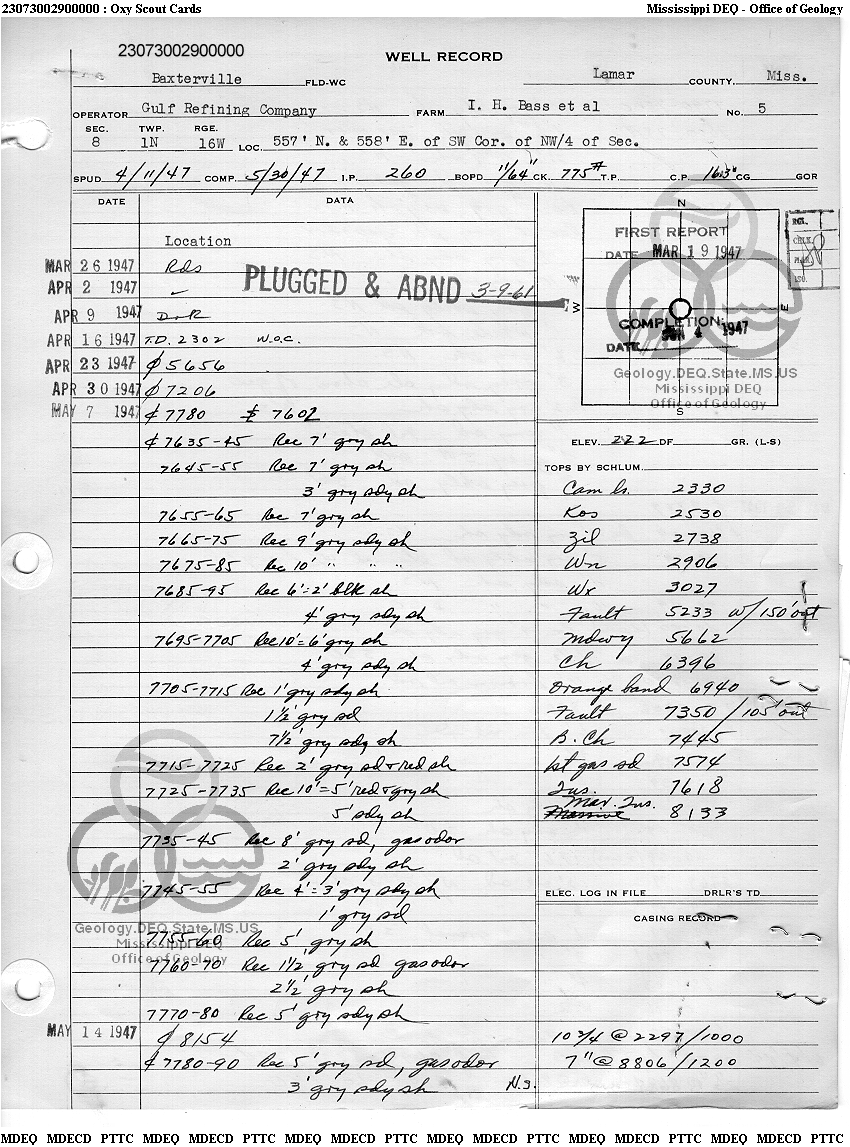 23073002900000 : Oxy Scout Cards Mississippi DEQ - Office of Geology
23073002900000
WELL RECORD
Baxterville FLD-WC Lamar COUNTY, Miss.
OPERATOR Gulf Refining Company FARM I. H. Bass et al NO. 5
SEC. TWP. RGE.
8 1N 16W LOC. 557' N. & 558' E. of SW Cor. of NW/4 of Sec.
SPUD 4/11/47 COMP. 5/30/47 I.P. 260 BOPD 11/64" CK. 775# T.P. C.P. 163° CG. GOR
DATE DATA
Location
MAR 26 1947 Rds
APR 2 1947 —
PLUGGED & ABND 3-9-61
APR 9 1947 D-R
APR 16 1947 T.D. 2302 W.O.C.
APR 23 1947 ₵ 5656
APR 30 1947 ₵ 7206
MAY 7 1947 ₵ 7780 7602
₵ 7635-45 Rec 7' gry sh
7645-55 Rec 7' gry sh
3' gry sdy sh
7655-65 Rec 7' gry sh
7665-75 Rec 9' gry sdy sh
7675-85 Rec 10' " " "
7685-95 Rec 6'=2' blk sh
4' gry sdy sh
7695-7705 Rec 10'=6' gry sh
4' gry sdy sh
7705-7715 Rec 1' gry sdy sh
1½' gry sd
7½' gry sdy sh
7715-7725 Rec 2' gry sd & red sh
7725-7735 Rec 10'=5' red & gry sh
5' sdy sh
7735-45 Rec 8' gry sd, gas odor
2' gry sdy sh
7745-55 Rec 4'=3' gry sdy sh
1' gry sd
7755-60 Rec 5' gry sh
7760-70 Rec 1½' gry sd gas odor
2½' gry sh
7770-80 Rec 5' gry sdy sh
MAY 14 1947 ₵ 8154
₵ 7780-90 Rec 5' gry sd, gas odor
3' gry sdy sh N.S.
N
FIRST REPORT
DATE MAR 19 1947
W E
COMPLETION:
DATE JUN 4 1947
S
Geology.DEQ.State.MS.US
Mississippi DEQ
Office of Geology
ELEV. 222 DF GR. (L-S)
TOPS BY SCHLUM.
Cam ls. 2330
Kos 2530
Zil 2738
Wn 2906
Wx 3027
Fault 5233 w/150' out
Mdwy 5662
Ch 6396
Orange band 6940
Fault 7350 /105' out
B. Ch 7445
1st gas sd 7574
Tus. 7618
Massive Mar. Tus. 8133
ELEC. LOG IN FILE DRLR'S TD
CASING RECORD
10 3/4 @ 2297/1000
7" @ 8806/1200
Geology.DEQ.State.MS.US
Mississippi DEQ
Office of Geology
MDEQ MDECD PTTC MDEQ MDECD PTTC MDEQ MDECD PTTC MDEQ MDECD PTTC MDEQ MDECD PTTC MDEQ MDECD PTTC